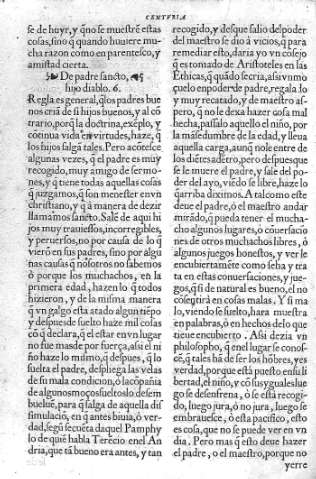 CENTURIA
se de huyr, y q̃no se muestrẽ estas
cosas, sino q̃ quando huuiere mu-
cha razon como en parentesco, y
amistad cierta.
De padre sancto,
hijo diablo. 6.
Regla es general, q̃los padres bue
nos criã de si hijos buenos, y al cõ
trario, porq̃ la doctrina, exẽplo, y
cõtinua vida en virtudes, haze, q̃
los hijos salgã tales. Pero acõtesce
algunas vezes, q̃ el padre es muy
recogido, muy amigo de sermo-
nes, y q̃ tiene todas aquellas cosas
q̃ juzgamos, q̃ son menester en vn
christiano, y q̃ à manera de dezir
llamamos sancto. Sale de aqui hi
jos muy trauiessos, incorregibles,
y peruersos, no por causa de lo q̃
vierõ en sus padres, sino por algu
nas causas q̃ nosotros no sabemos
ò porque los muchachos, en la
primera edad, hazen lo q̃ todos
hizieron, y de la misma manera
q̃ vn galgo està atado algun tiẽpo
y despues de suelto haze mil cosas
cõ q̃ declara, q̃ el estar en vn lugar
no fue mas de por fuerça, assi el ni
ño haze lo mismo, q̃ despues, q̃ lo
suelta el padre, despliega las velas
de su mala condicion, ò la cõpañia
de algunos moços sueltos lo desem
buelue, para q̃ salga de aquella dis
simulaciõ, en q̃ antes biuia, ò ver-
dad, segũ sucẽta daquel Pamphy
lo de quiẽ habla Terẽcio en el An
dria, que tã bueno era antes, y tan
recogido, y despues salio del poder
del maestro se dio à vicios, q̃ para
remediar esto, daria yo vn cõsejo
q̃ es tomado de Aristoteles en las
Ethicas, q̃ quãdo se cria, assi vn mo
çuelo en poder de padre, regala lo
y muy recatado, y de maestro as-
pero, q̃ no le dexa hazer cosa mal
hecha, passalo aquello el niño, por
la mãsedumbre de la edad, y lleua
aquella carga, aunq̃ no le entre de
los diẽtes adẽtro, pero despues que
se le muere el padre, y sale del po-
der del ayo, viẽdo se libre, haze lo
q̃ arriba diximos. A tal como este
deue el padre, ò el maestro andar
mirãdo, q̃ pueda tener el mucha-
cho algunos lugares, ò cõuersacio
nes de otros muchachos libres, ò
algunos juegos honestos, y ver le
encubiertamẽte como se ha y tra
ta en estas conuersaciones, y jue-
gos, q̃ si de natural es bueno, el no
cõsẽtirà en cosas malas. Y si ma
lo, viendo se suelto, hara muestra
en palabras, ò en hechos de lo que
tiene encubierto. Assi dezia vn
philosopho, q̃ en el lugar se conos-
ce, q̃ tales hã de ser los hõbres, yes
verdad, porque està puesto en su li
bertad, el niño, y cõ sus yguales lue
go se desenfrena, ò se està recogi-
do, luego jura, ò no jura, luego se
embrauesce, ò esta pacifico, esto
es cosa, que no se puede ver en vn
dia. Pero mas q̃ esto deue hazer
el padre, o el maestro, porque no
yerre